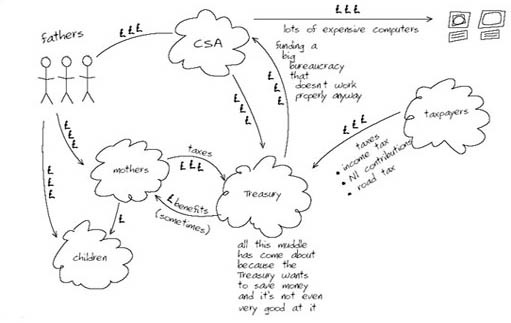 fathers
£ £ £
CSA
£ £ £
lots of expensive computers
funding a
big
bureaucracy
that
doesn't work
properly anyway
£
£
£
£
£
£
£
£
£
£ £ £
taxpayers
taxes
• income tax
• NI contributions
• road tax
£
£
£
£
£
£
mothers
taxes
£ £ £
Treasury
£ benefits
(sometimes)
£
children
all this muddle
has come about
because the
Treasury wants
to save money
and it's not even
very good at it